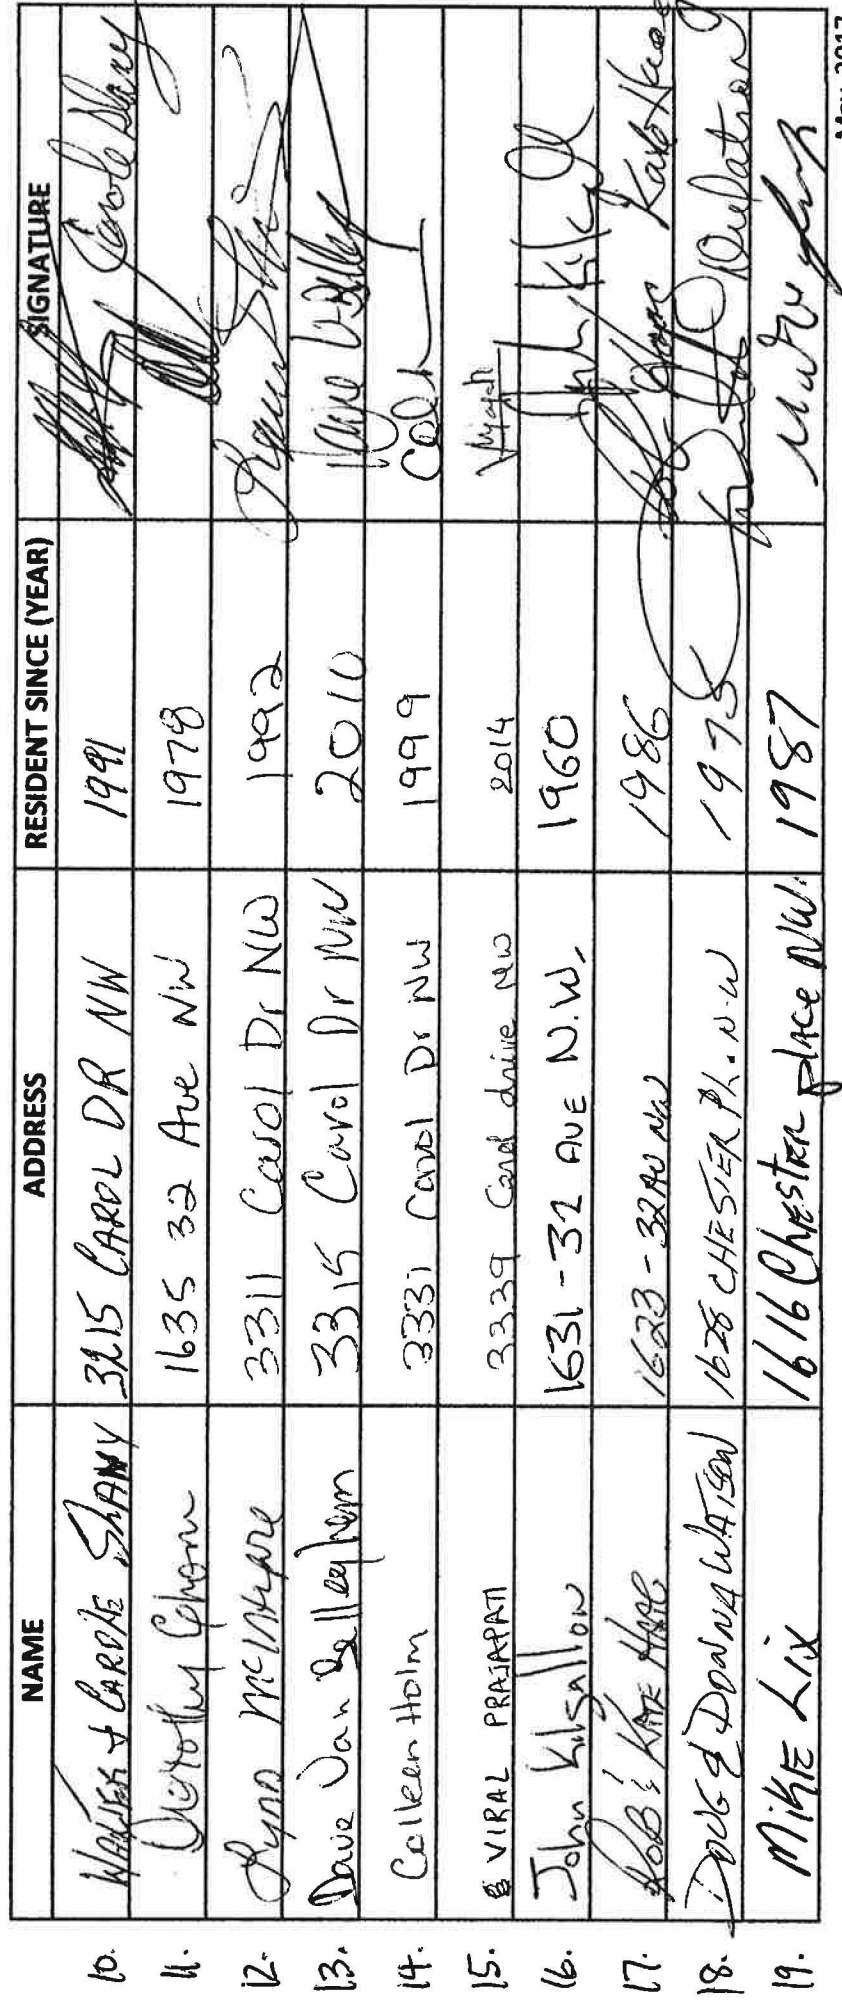 NAME ADDRESS RESIDENT SINCE (YEAR) SIGNATURE
10. WALTER + CAROLE SHAWY 3215 CAROL DR NW 1991
11. Dorothy 1635 32 Ave NW 1978
12. Lynn McIntyre 3311 Carol Dr NW 1992
13. Dave Van 3315 Carol Dr NW 2010
14. Colleen Holm 3331 Carol Dr NW 1999
15. VIRAL PRAJAPATI 3339 Carol drive NW 2014
16. John Kilgallon 1631-32 AVE N.W. 1960
17. ROB & KATE 1623-32 AV NW 1986
18. DOUG & DONNA WATSON 1628 CHESTER PL. N.W 1975
19. MIKE LIX 1616 Chester place NW. 1987
May 2017